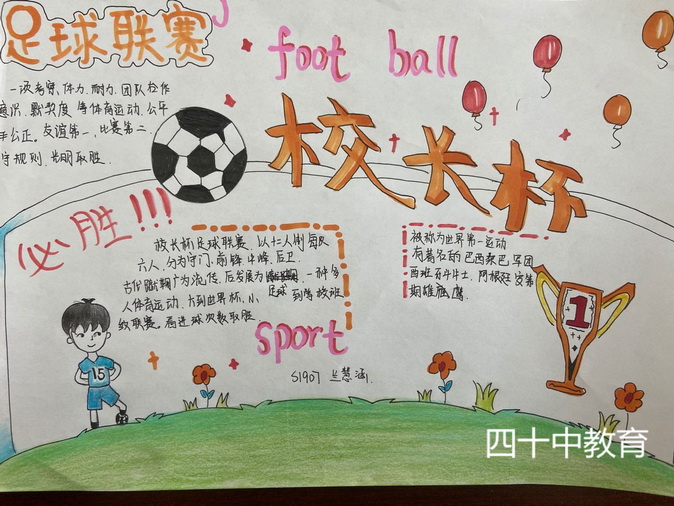 足球联赛
foot ball
一次考察,体力,耐力,团队合作
意识,默契度等体育运动,公平
公正.友谊第一,比赛第二.
守规则,光明取胜.
校长杯
必胜!!!
校长杯足球联赛,以十二人制每队
六人,分为守门,前锋,中峰,后卫.
古代蹴鞠广为流传,后发展为 一种多
足球
人体育运动,大到世界杯,小 到学校班
级联赛.看进球次数取胜.
被称为世界第一运动
有著名的巴西桑巴军团
西班牙斗牛士,阿根廷
雄鹰
1
15
sport
S1907 兰慧涵.
四十中教育